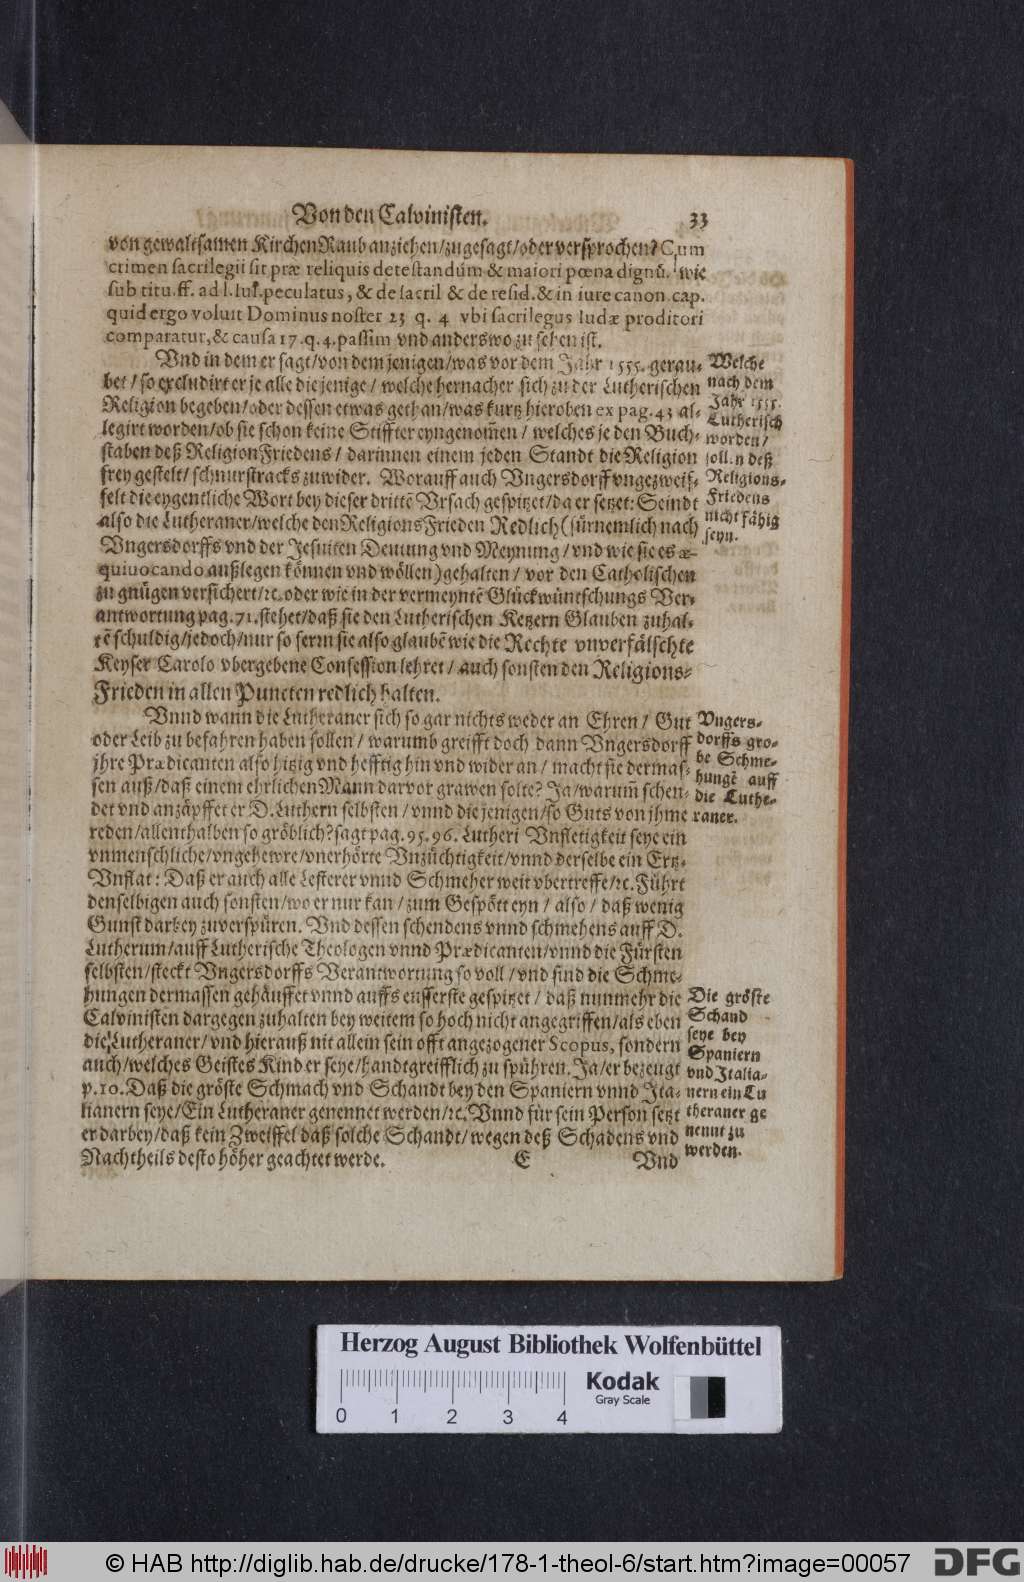 Von den Calvinisten. 33
von gewaltsamen KirchenRaub anziehen/zugesagt/oder versprochen? Cum
crimen sacrilegii sit præ reliquis detestandúm & maiori pœna dignũ. wie
sub titu. ff. ad l. Iul. peculatus, & de sacril & de resid. & in iure canon. cap.
quid ergo voluit Dominus noster 23 q. 4 vbi sacrilegus Iudæ proditori
comparatur, & causa 17. q. 4. passim vnd anderswo zu sehen ist.
Vnd in dem er sagt/von dem jenigen/was vor dem Jahr 1555. gerau-
bet/so excludirt er je alle die jenige/welche hernacher sich zu der Lutherischen
Religion begeben/oder dessen etwas gethan/was kurtz hieroben ex pag. 43 al-
legirt worden/ob sie schon keine Stiffter eyngenom̃en/welches je den Buch-
staben deß ReligionFriedens/darinnen einem jeden Standt die Religion
frey gestelt/schnurstracks zuwider. Worauff auch Vngersdorff vngezweif-
felt die eygentliche Wort bey dieser drittẽ Vrsach gespitzet/da er setzet: Seindt
also die Lutheraner/welche den ReligionsFrieden Redlich (fürnemlich nach
Vngersdorffs vnd der Jesuiten Deutung vnd Meynung/vnd wie sie es æ-
quiuocando außlegen können vnd wöllen) gehalten/vor den Catholischen
zu gnügen versichert/ꝛc. oder wie in der vermeyntẽ Glückwüntschungs Ver-
antwortung pag. 71. stehet/daß sie den Lutherischen Ketzern Glauben zuhal-
tẽ schuldig/jedoch/nur so ferrn sie also glaubẽ wie die Rechte vnverfälschte
Keyser Carolo vbergebene Confession lehret/auch sonsten den Religions-
Frieden in allen Puncten redlich halten.
Welche
nach dem
Jahr 1555.
Lutherisch
worden/
sollen deß
Religions-
Friedens
nicht fähig
seyn.
Vnnd wann die Lutheraner sich so gar nichts weder an Ehren/Gut
oder Leib zu befahren haben sollen/warumb greifft doch dann Vngersdorff
jhre Prædicanten also hitzig vnd hefftig hin vnd wider an/macht sie dermas-
sen auß/daß einem ehrlichen Mann darvor grawen solte? Ja/warum̃ schen-
det vnd anzäpffet er D. Luthern selbsten/vnnd die jenigen/so Guts von jhme
reden/allenthalben so gröblich? sagt pag. 95. 96. Lutheri Vnfletigkeit seye ein
vnmenschliche/vngehewre/vnerhörte Vnzüchtigkeit/vnnd derselbe ein Ertz-
Vnflat: Daß er auch alle Lesterer vnnd Schmeher weit vbertreffe/ꝛc. Führt
denselbigen auch sonsten/wo er nur kan/zum Gespött eyn/also/daß wenig
Gunst darbey zuverspüren. Vnd dessen schendens vnnd schmehens auff D.
Lutherum/auff Lutherische Theologen vnnd Prædicanten/vnnd die Fürsten
selbsten/steckt Vngersdorffs Verantwortung so voll/vnd sind die Schme-
hungen dermassen gehäuffet vnnd auffs eusserste gespitzet/daß nunmehr die
Calvinisten dargegen zuhalten bey weitem so hoch nicht angegriffen/als eben
die Lutheraner/vnd hierauß nit allein sein offt angezogener Scopus, sondern
auch/welches Geistes Kind er seye/handtgreifflich zu spühren. Ja/er bezeugt
p. 10. Daß die gröste Schmach vnd Schandt bey den Spaniern vnnd Ita-
lianern seye/Ein Lutheraner genennet werden/ꝛc. Vnnd für sein Person setzt
er darbey/daß kein Zweiffel daß solche Schandt/wegen deß Schadens vnd
Nachtheils desto höher geachtet werde.
Vngers-
dorffs gro-
be Schme-
hungẽ auff
die Luthe-
raner.
Die gröste
Schand
seye bey
Spaniern
vnd Italia-
nern ein Lu
theraner ge
nennt zu
werden.
E Vnd
Herzog August Bibliothek Wolfenbüttel
Kodak
Gray Scale
0 1 2 3 4
© HAB http://diglib.hab.de/drucke/178-1-theol-6/start.htm?image=00057
DFG